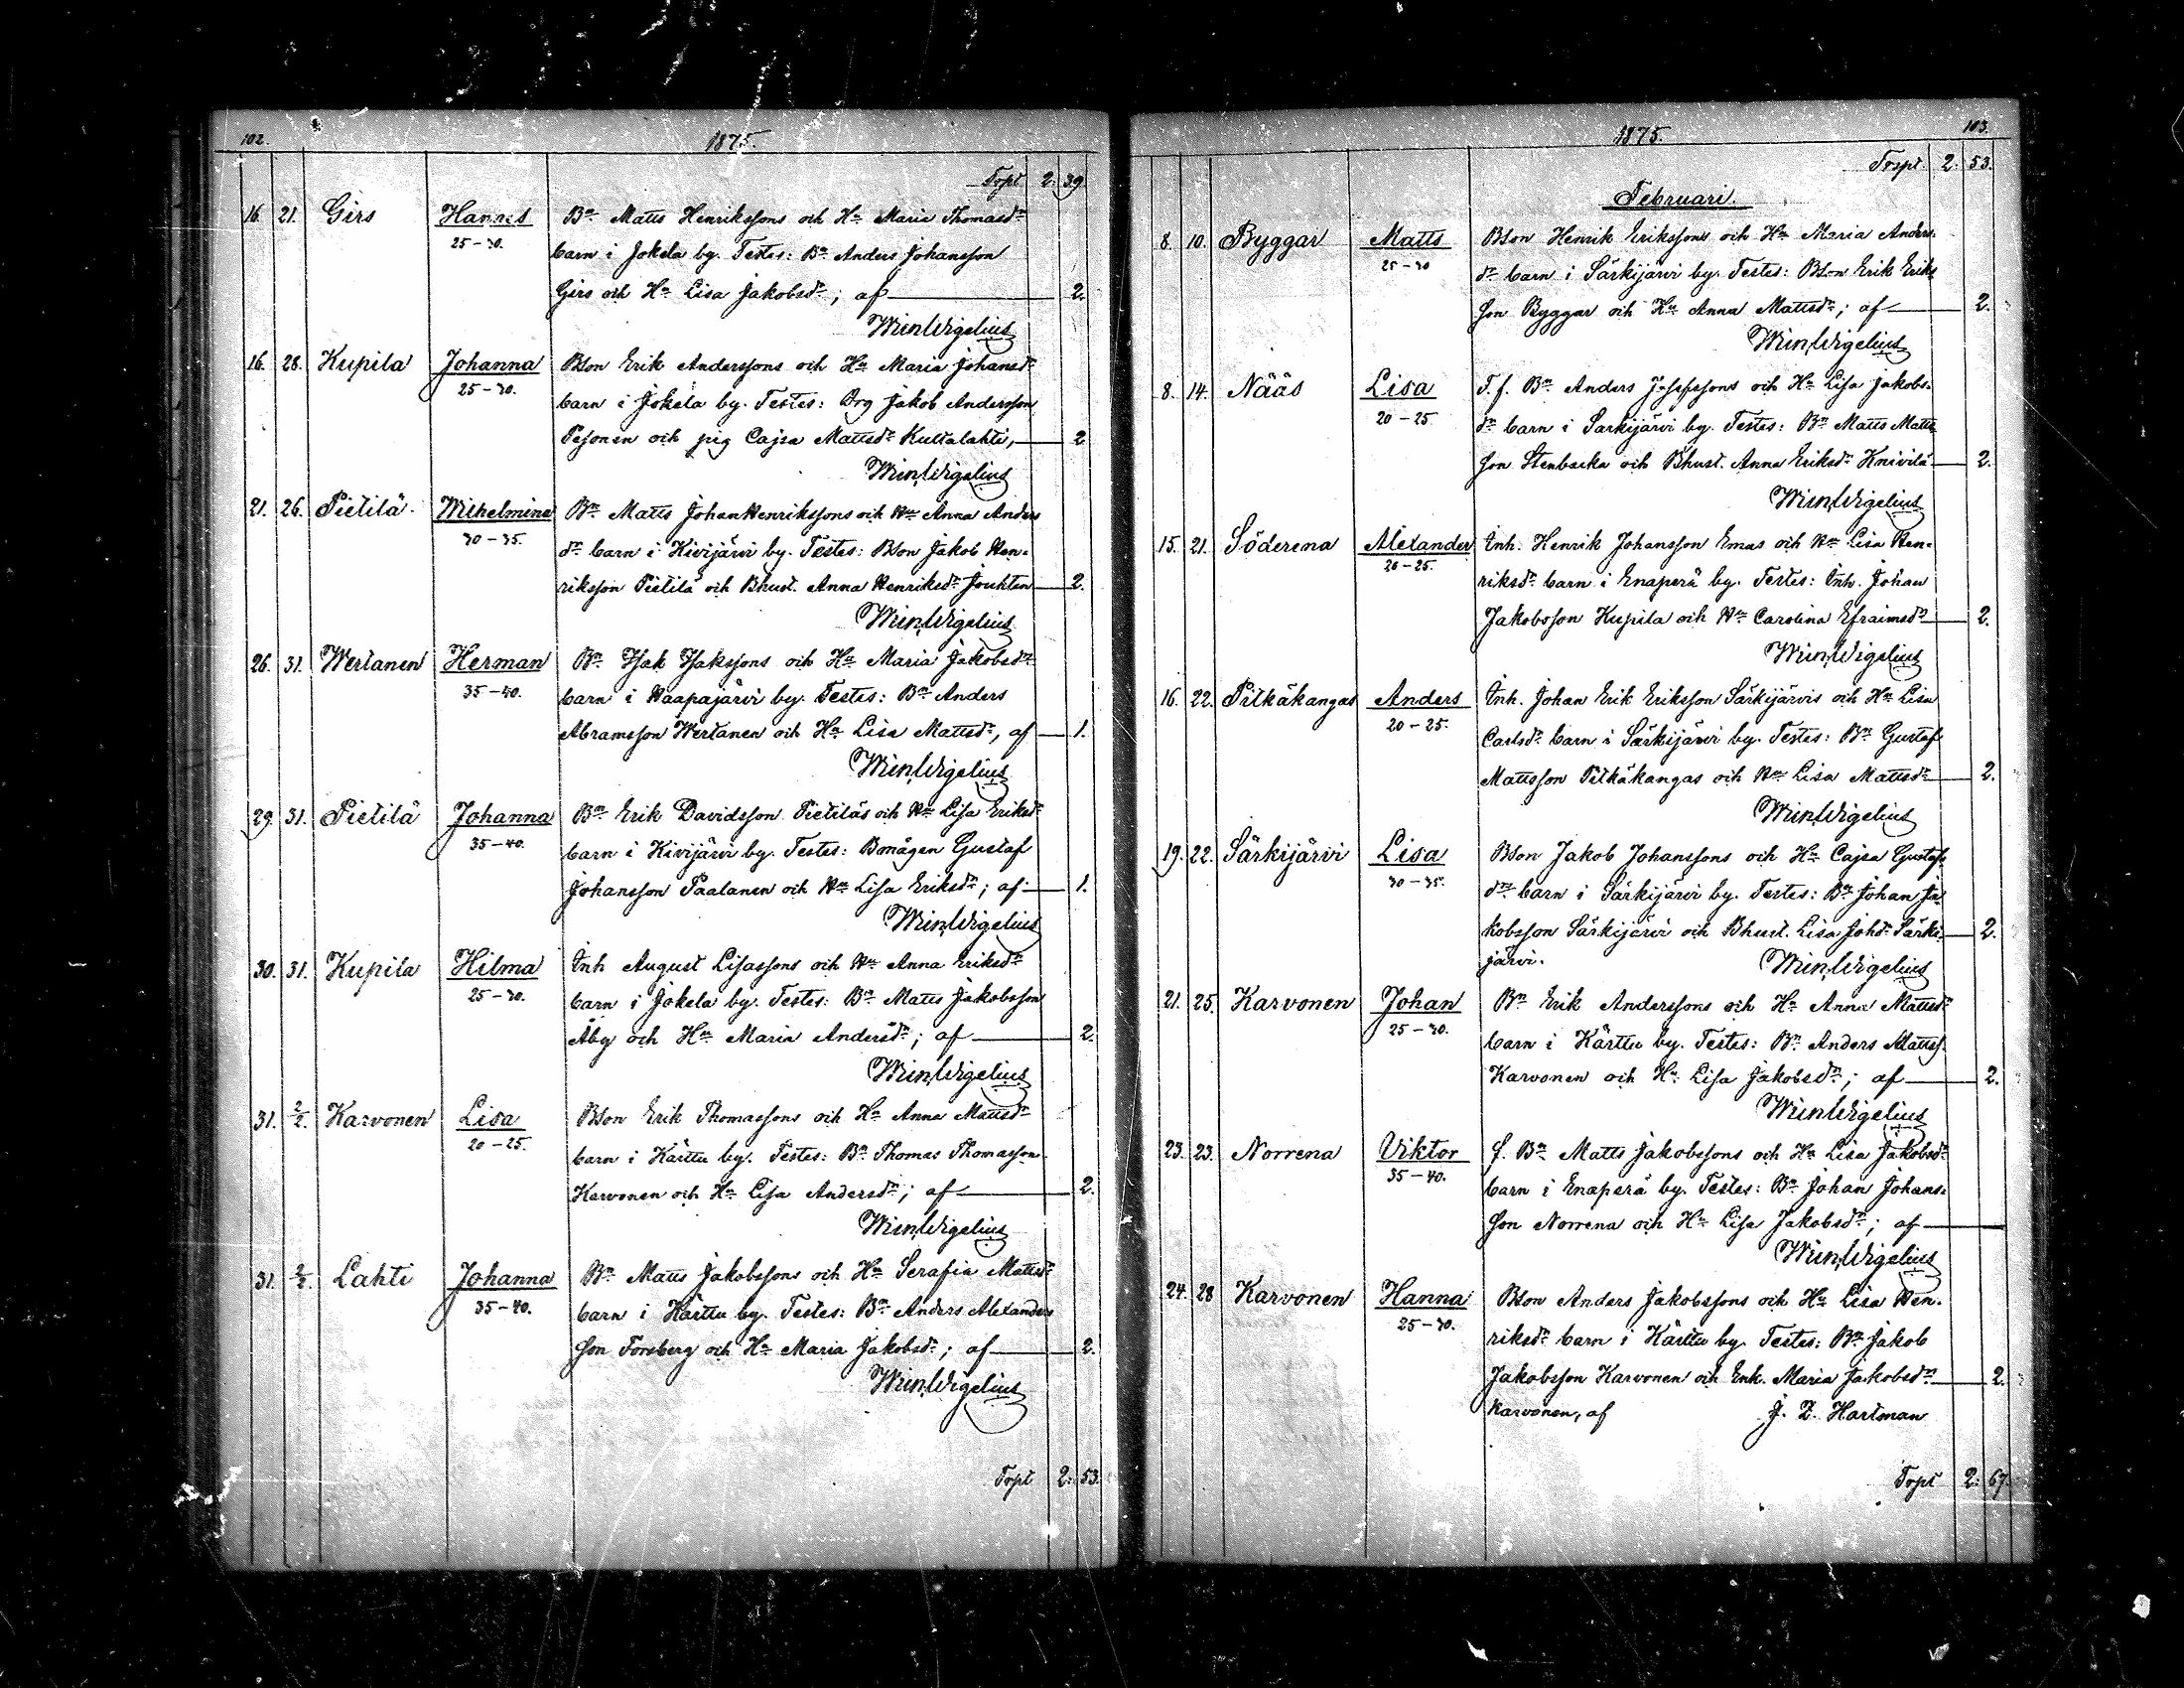 102.
1875.
Topt 2: 39.
16. 21. Girs Hannes Bn Matts Henrikssons och Hu Maria Thomasdr
25-30. barn i Jokela by. Testes: Bn Anders Johansson
Girs och Hu Lisa Jakobsdr; af 2.
Wigelius
16. 28. Kupila Johanna Bson Erik Anderssons och Hu Maria Johansdr
25-30. barn i Jokela by. Testes: Drg Jakob Andersson
Pesonen och pig Cajsa Mattsdr Kuttalahti, 2
Wigelius
21. 26. Pietilä Wilhelmina Bn Matts Johan Henrikssons och Hu Anna Anders
30-35. dr barn i Kivijärvi by. Testes: Bson Jakob Hen-
riksson Pietilä och Bhust. Anna Henriksdr Jouhten 2.
Wigelius
26. 31. Wertanen Herman Bn Isak Isakssons och Hu Maria Jakobsdr
35-40. barn i Haapajärvi by. Testes: Bn Anders
Abramsson Wertanen och Hu Lisa Mattsdr, af 1.
Wigelius
29. 31. Pietilä Johanna Bn Erik Davidsson Pietiläs och Hu Lisa Eriksdr
35-40. barn i Kivijärvi by. Testes: Bmågen Gustaf
Johansson Paalanen och Hu Lisa Eriksdr; af 1.
Wigelius
30. 31. Kupila Hilma Inh August Lisassons och Hu Anna Eriksdr
25-30. barn i Jokela by. Testes: Bn Matts Jakobsson
Åbg och Hu Maria Andersdr; af 2.
Wigelius
31. 2/2. Karvonen Lisa Bson Erik Thomassons och Hu Anna Mattsdr
20-25. barn i Kärttu by. Testes: Bn Thomas Thomasson
Karvonen och Hu Lisa Andersdr; af 2.
Wigelius
31. 2/2 Lahti Johanna Bn Matts Jakobssons och Hu Serafia Mattsdr
35-40. barn i Kärttu by. Testes: Bn Anders Alexanders
son Forsberg och Hu Maria Jakobsdr; af 2.
Wigelius
Topt 2: 53.
103.
1875.
Trspt. 2: 53.
Februari.
8. 10. Byggar Matts Bson Henrik Erikssons och Hu Maria Anders
25-30 dr barn i Särkijärvi by. Testes: Bson Erik Eriks
son Byggar och Hu Anna Mattsdr; af 2.
Wigelius
8. 14. Nääs Lisa T. f. Bn Anders Josefssons och Hu Lisa Jakobs-
20-25. dr barn i Särkijärvi by. Testes: Bn Matts Matts
son Stenbacka och Bhust. Anna Eriksdr Knivilä 2.
Wigelius
15. 21. Söderena Alexander Inh. Henrik Johansson Emas och Hu Lisa Hen-
20-25. riksdr barn i Enäperä by. Testes: Inh. Johan
Jakobsson Kupila och Hu Carolina Efraimsdr 2.
Wigelius
16. 22. Pitkäkangas Anders Inh. Johan Erik Eriksson Särkijärvis och Hu Lisa
20-25. Carlsdr barn i Särkijärvi by. Testes: Bn Gustaf
Mattsson Pitkäkangas och Hu Lisa Mattsdr 2.
Wigelius
19. 22. Särkijärvi Lisa Bson Jakob Johanssons och Hu Cajsa Gustafs
30-35. dr barn i Särkijärvi by. Testes: Bn Johan Ja-
kobsson Särkijärvi och Bhust. Lisa Johdr Särki- 2.
järvi. Wigelius
21. 25. Karvonen Johan Bn Erik Anderssons och Hu Anna Mattsdr
25-30. barn i Kärttu by. Testes: Bn Anders Mattss.
Karvonen och Hu Lisa Jakobsdr; af 2.
Wigelius
23. 23. Norrena Viktor f. Bn Matts Jakobssons och Hu Lisa Jakobsdr
35-40. barn i Enäperä by. Testes: Bn Johan Johans-
son Norrena och Hu Lisa Jakobsdr; af
Wigelius
24. 28 Karvonen Hanna Bson Anders Jakobssons och Hu Lisa Hen-
25-30. riksdr barn i Kärttu by. Testes: Bn Jakob
Jakobsson Karvonen och Enk. Maria Jakobsdr 2.
Karvonen, af J. Z. Hartman
Topt 2: 67.